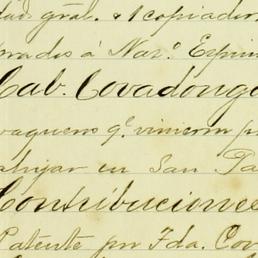 gral. & 1 copiador
á Nar.º Espin
Cab. Covadonga
vaqueros q.e vinieron p
en San Pa
Contribuciones
Patente por Fda. Cov